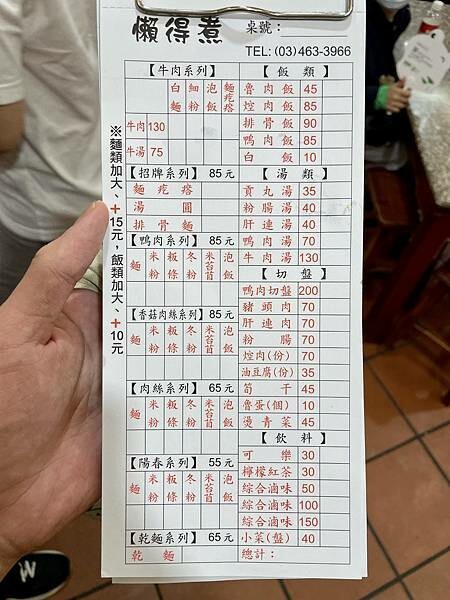 懶得煮
桌號：
TEL: (03)463-3966
※麵類加大、+15元，飯類加大、+10元
【牛肉系列】
白麵 細粉 泡飯 麵疙瘩
牛肉 130
牛湯 75
【招牌系列】 85元
麵疙瘩
湯圓
排骨麵
【鴨肉系列】 85元
麵 米粉 粄條 冬粉 米苔苜 泡飯
【香菇肉絲系列】 85元
麵 米粉 粄條 冬粉 米苔苜 泡飯
【肉絲系列】 65元
麵 米粉 粄條 冬粉 米苔苜 泡飯
【陽春系列】 55元
麵 米粉 粄條 冬粉 米苔苜 泡飯
【乾麵系列】 65元
乾麵
【飯類】
魯肉飯 45
焢肉飯 85
排骨飯 90
鴨肉飯 85
白飯 10
【湯類】
貢丸湯 35
粉腸湯 40
肝連湯 40
鴨肉湯 70
牛肉湯 130
【切盤】
鴨肉切盤 200
豬頭肉 70
肝連肉 70
粉腸 70
焢肉(份) 70
油豆腐(份) 35
筍干 45
魯蛋(個) 10
燙青菜 45
【飲料】
可樂 30
檸檬紅茶 30
綜合滷味 50
綜合滷味 100
綜合滷味 150
小菜(盤) 40
總計：